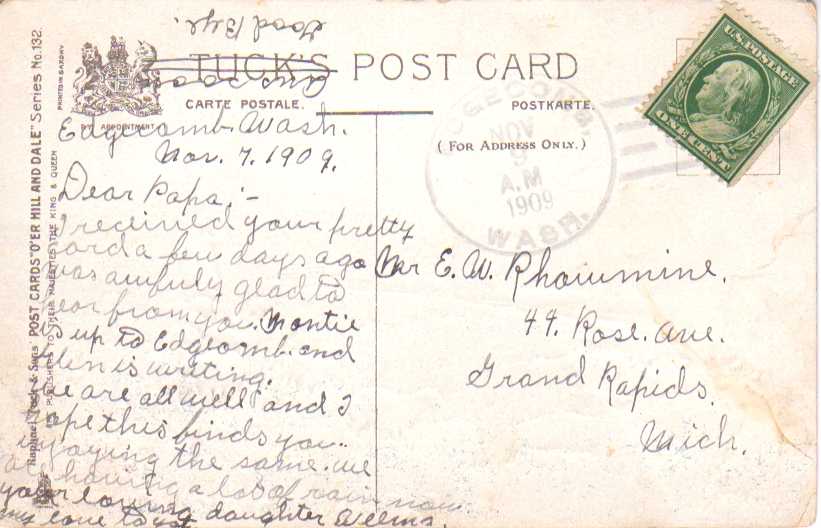 Good Bye.
TUCK'S POST CARD
CARTE POSTALE.
POSTKARTE.
( FOR ADDRESS ONLY. )
BY APPOINTMENT
PRINTED IN SAXONY
Raphael Tuck & Sons' POST CARDS "O'ER HILL AND DALE" Series No. 132.
PUBLISHERS TO THEIR MAJESTIES THE KING & QUEEN
U.S. POSTAGE
ONE CENT
EDGECOMB,
NOV
9
A.M
1909
WASH.
Edgecomb. Wash.
Nov. 7. 1909.
Dear Papa:-
I received your pretty
card a few days ago
was awfuly glad to
hear from you. Montie
is up to Edgecomb. and
is writing.
we are all well and I
hope this finds you
injoying the same. we
are having a lot of rain now
your loving daughter Wellma.
my love to
Mr E. W. Rhowmine.
44. Rose. ave.
Grand Rapids.
Mich.